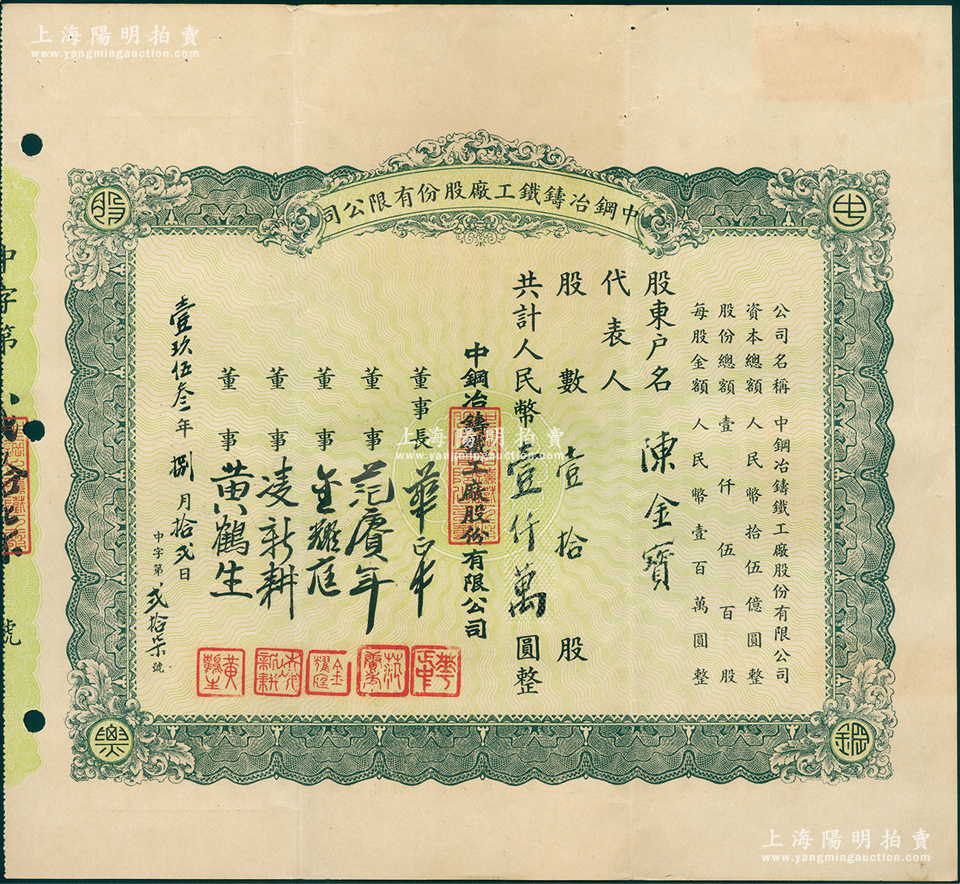 上海陽明拍賣
www.yangmingauction.com
中鋼冶鑄鐵工廠股份有限公司
股
中
鋼
公司名稱 中鋼冶鑄鐵工廠股份有限公司
資本總額 人民幣拾伍億圓整
股份總額 壹仟伍百股
每股金額 人民幣壹百萬圓整
股東户名 陳金寶
代表人
股數 壹拾股
共計人民幣壹仟萬圓整
中鋼冶鑄鐵工廠股份有限公司
董事長 華
董事 范賡年
董事 金耀庭
董事 凌新耕
董事 黃鶴生
壹玖伍叁年捌月拾弍日
中字第弍拾柒號
中字第 號
上海陽明拍賣
www.yangmingauction.com
上海陽明拍賣
www.yangmingauction.com